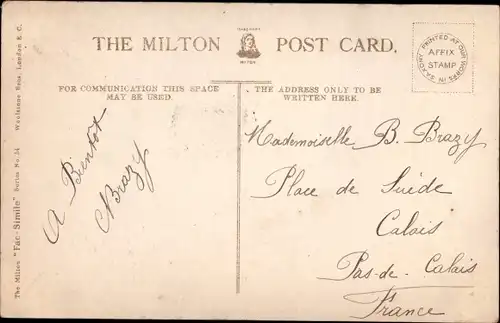 THE MILTON POST CARD.
TRADE MARK
MILTON
PRINTED AT OUR WORKS IN SAXONY
AFFIX
STAMP
FOR COMMUNICATION THIS SPACE
MAY BE USED
THE ADDRESS ONLY TO BE
WRITTEN HERE.
A Bientôt
Brazy
Mademoiselle B. Brazy
Place de Suède
Calais
Pas-de-Calais
France
The Milton "Fac-Simile" Series No. 14 Woolstone Bros. London E.C.